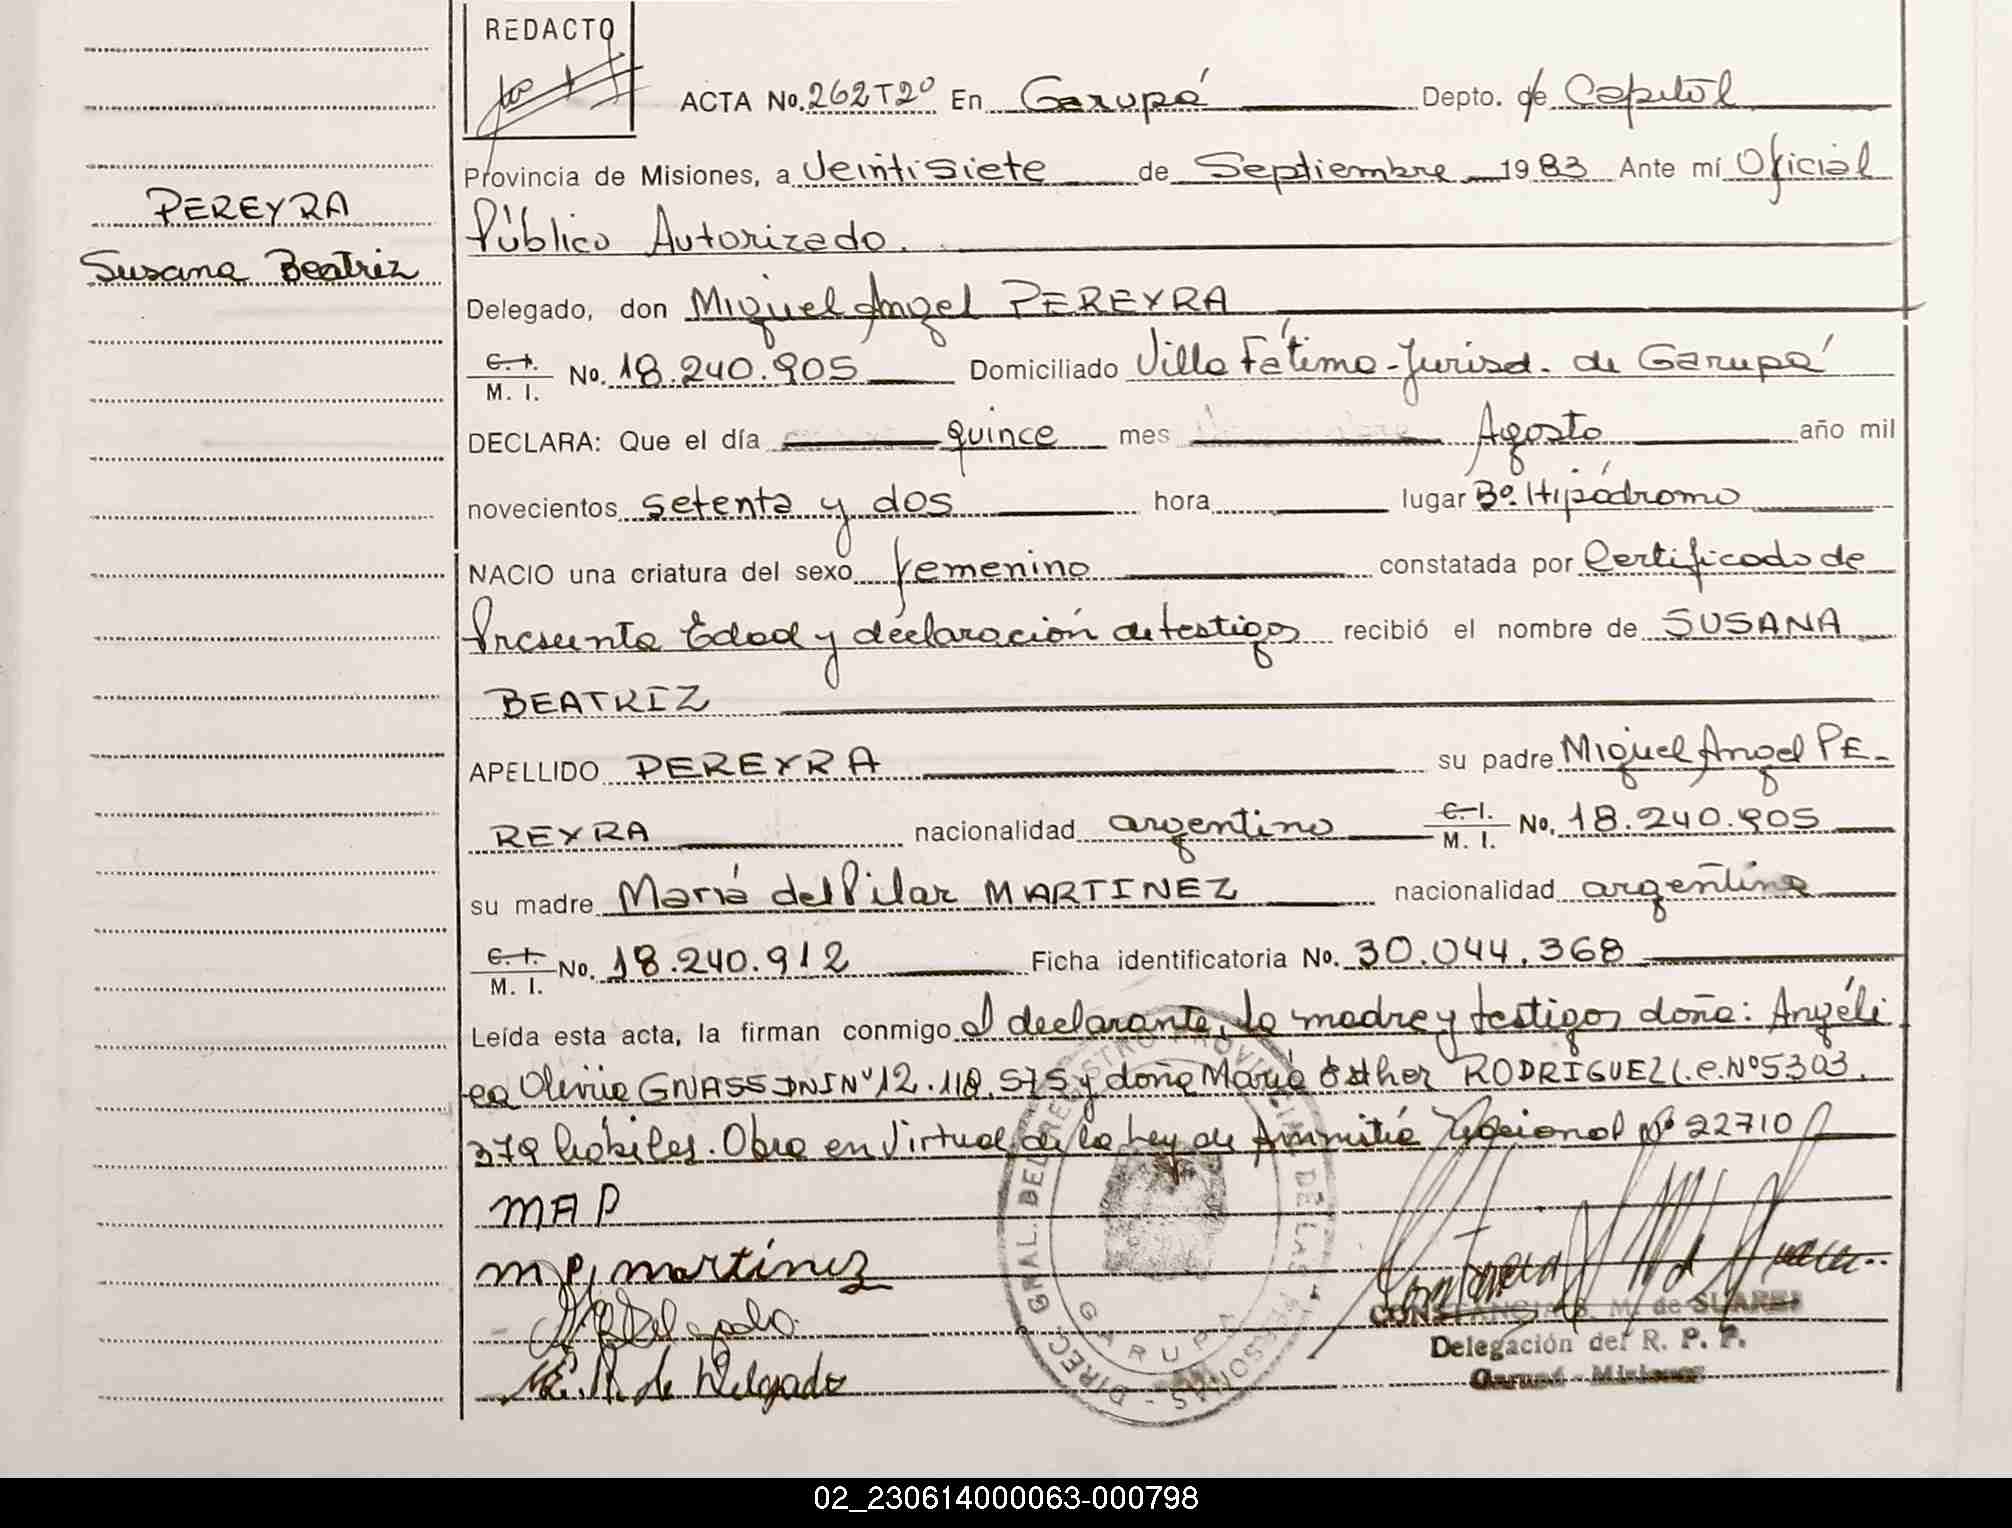 REDACTO
ACTA No. 262 Tº 2º En Garupá Depto. de Capital
Provincia de Misiones, a Veintisiete de Septiembre 1983 Ante mí Oficial
Público Autorizado.
PEREYRA
Susana Beatriz
Delegado, don Miguel Angel PEREYRA
C. I.
M. I. No. 18.240.905 Domiciliado Villa Fátima - Jurisd. de Garupá
DECLARA: Que el día quince mes Agosto año mil
novecientos setenta y dos hora lugar Bº. Hipódromo
NACIO una criatura del sexo femenino constatada por Certificado de
Presunta Edad y declaración de testigos recibió el nombre de SUSANA
BEATRIZ
APELLIDO PEREYRA su padre Miguel Angel PE-
REYRA nacionalidad argentino C. I.
M. I. No. 18.240.905
su madre María del Pilar MARTINEZ nacionalidad argentina
C. I.
M. I. No. 18.240.912 Ficha identificatoria No. 30.044.368
Leída esta acta, la firman conmigo el declarante, la madre y testigos doña: Angéli
ca Olivia GNASS DNI Nº 12.118.575 y doña María Esther RODRIGUEZ L.C. Nº 5303.
379 hábiles. Obra en Virtud de la Ley de Amnistía Nacional Nº 22710
MAP
M P, martínez
Delgado
M.E. R. de Delgado
DIREC. GRAL. DEL REGISTRO PROVINCIAL DE LAS PERSONAS
GARUPA
CONSTANCIA B. M. de SUAREZ
Delegación del R. P. P.
Garupá - Misiones
02_230614000063-000798